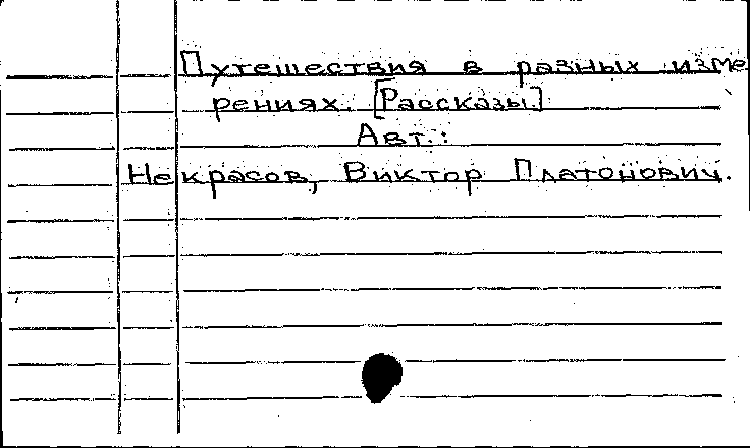 Путешествия в разных изме
рениях. [Рассказы]
Авт.:
Некрасов, Виктор Платонович.